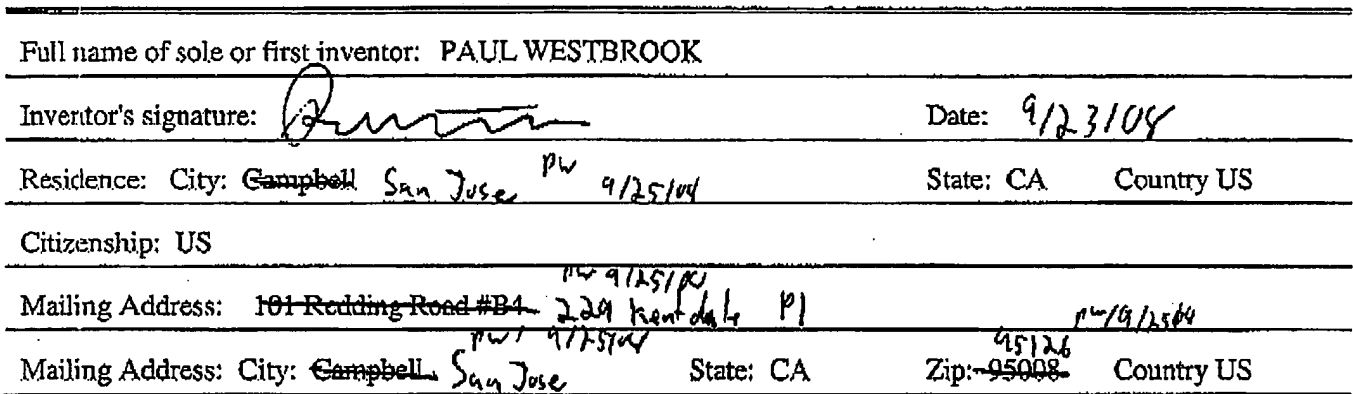 Full name of sole or first inventor: PAUL WESTBROOK
Inventor's signature: Date: 9/23/04
Residence: City: Campbell San Jose PW 9/25/04 State: CA Country US
Citizenship: US
pw 9/25/04
Mailing Address: 101 Redding Road #B4 229 Pl pw/9/25/04
pw/ 9/25/04 95126
Mailing Address: City: Campbell San Jose State: CA Zip: 95008 Country US